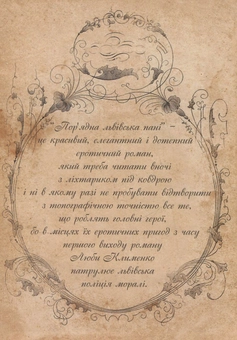 Пор'ядна львівська пані –
це красивий, елегантний і дотепний
еротичний роман,
який треба читати вночі
з ліхтариком під ковдрою
і ні в якому разі не пробувати відтворити
з топографічною точністю все те,
що роблять головні герої,
бо в місцях їх еротичних пригод з часу
першого виходу роману
Люби Клименко
патрулює львівська
поліція моралі.